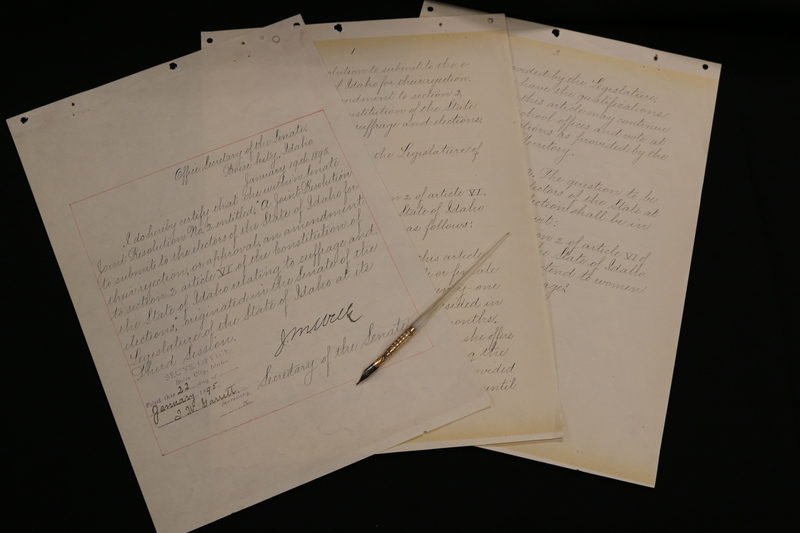 Office Secretary of the Senate
Boise City, Idaho
January 19th 1895
I do hereby certify that the within Senate
Joint Resolution No. 2 entitled; "A Joint Resolution
to submit to the electors of the State of Idaho for
their rejection, or approval, an amendment
to section 2 article VI of the Constitution of
the State of Idaho relating to suffrage and
elections," originated in the Senate of the
Legislature of the State of Idaho at its
Third Session.
Secretary of the Senate
Filed this 22
January 1895
I. W. Garrett
Secretary
1
to submit to the
of Idaho for their rejection,
to section 2
of the State
suffrage and elections.
the Legislature of
2 of article VI.
State of Idaho
as follows:
this article
or female
in
months,
she offers
the
until
by the Legislature,
have the qualifications
this article may continue
school offices and vote at
as provided by the
Territory.
The question to be
of the State at
election shall be in
2 of article VI of
the State of Idaho
to women